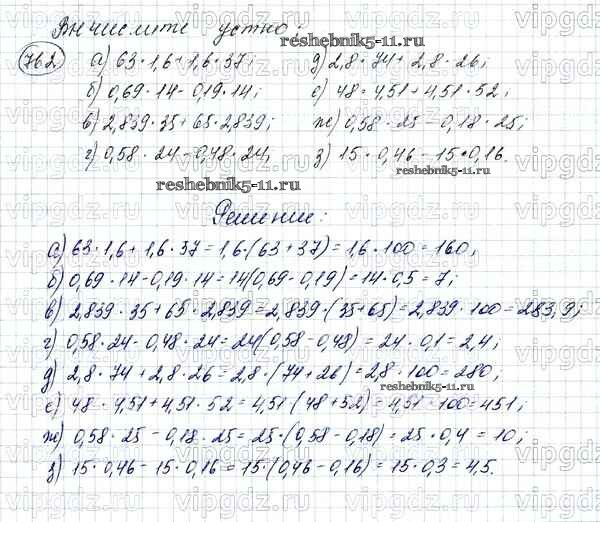 Вычислите устно:
reshebnik5-11.ru
762. а) 63·1,6+1,6·37; д) 2,8·74+2,8·26;
б) 0,69·14-0,19·14; е) 48·4,51+4,51·52;
в) 2,839·35+65·2,839; ж) 0,58·25-0,18·25;
г) 0,58·24-0,48·24; з) 15·0,46-15·0,16.
reshebnik5-11.ru
reshebnik5-11.ru
Решение:
а) 63·1,6+1,6·37=1,6·(63+37)=1,6·100=160;
б) 0,69·14-0,19·14=14(0,69-0,19)=14·0,5=7;
в) 2,839·35+65·2,839=2,839·(35+65)=2,839·100=283,9;
г) 0,58·24-0,48·24=24(0,58-0,48)=24·0,1=2,4;
д) 2,8·74+2,8·26=2,8·(74+26)=2,8·100=280;
reshebnik5-11.ru
е) 48·4,51+4,51·52=4,51(48+52)=4,51·100=451;
ж) 0,58·25-0,18·25=25·(0,58-0,18)=25·0,4=10;
з) 15·0,46-15·0,16=15·(0,46-0,16)=15·0,3=4,5.
vipgdz.ru